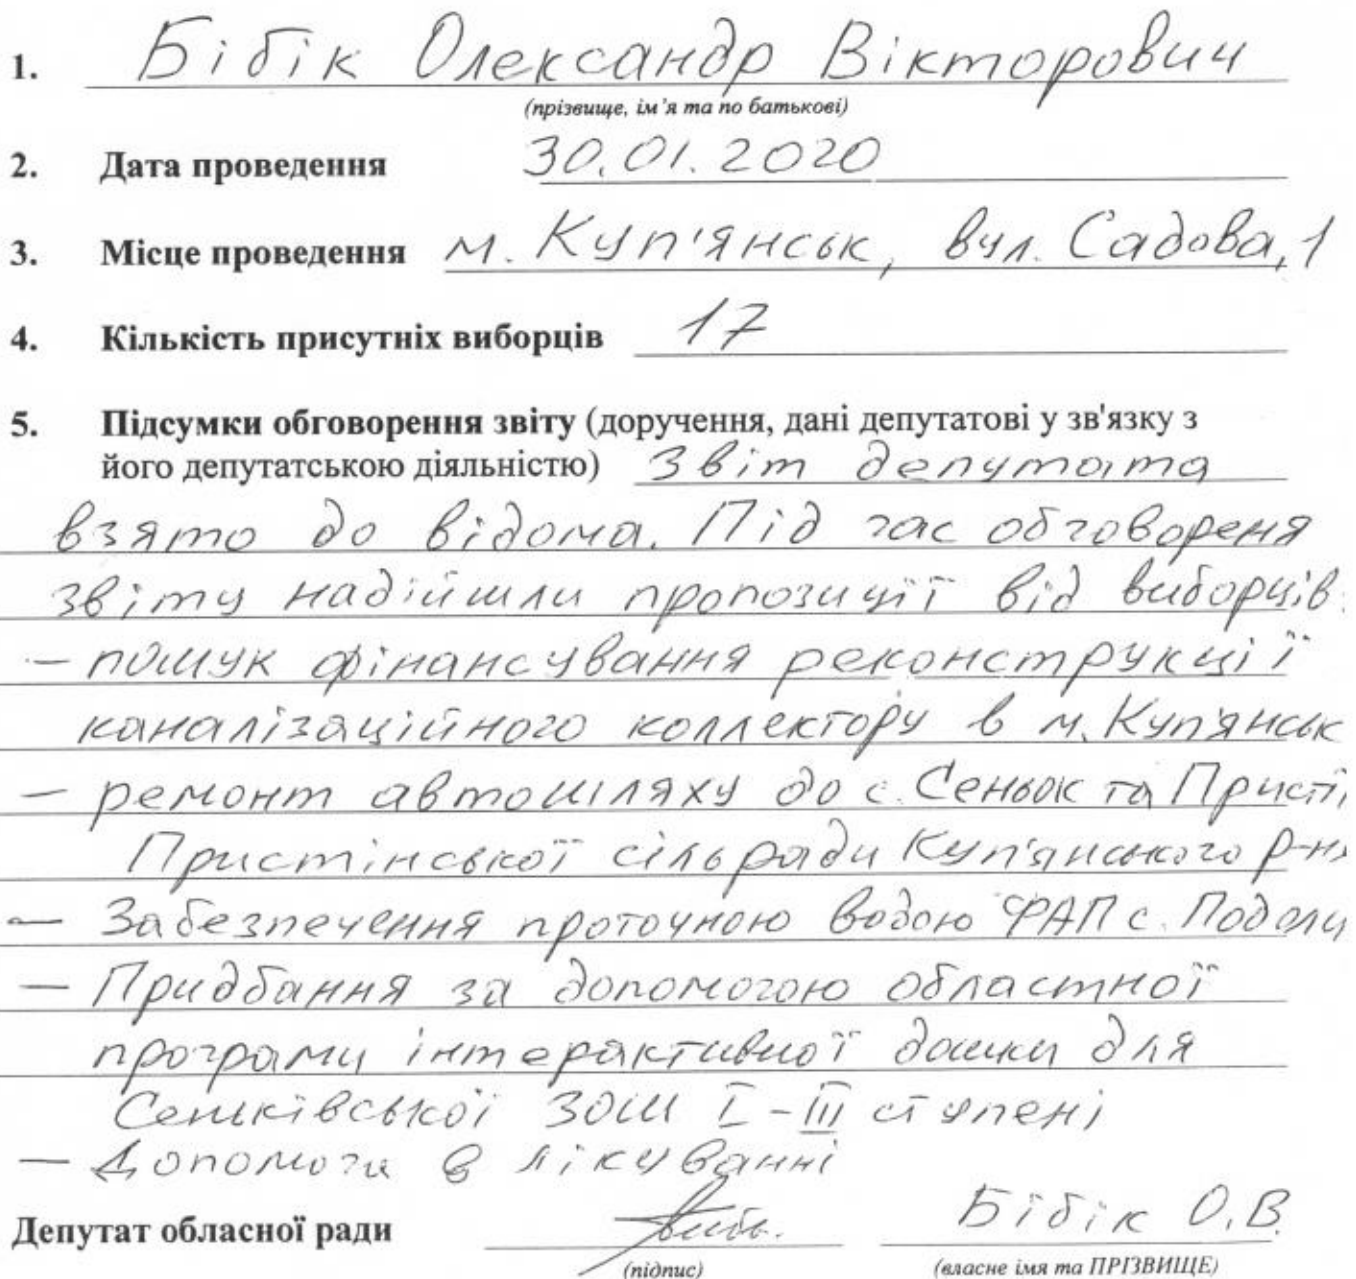 1. Бібік Олександр Вікторович
(прізвище, ім'я та по батькові)
2. Дата проведення 30.01.2020
3. Місце проведення м. Куп'янськ, вул. Садова, 1
4. Кількість присутніх виборців 17
5. Підсумки обговорення звіту (доручення, дані депутатові у зв'язку з
його депутатською діяльністю) Звіт депутата
взято до відома. Під час обговореня
звіту надійшли пропозиції від виборців:
- пошук фінансування реконструкції
каналізаційного коллектору в м. Куп'янськ
- ремонт автошляху до с. Сеньок та Пристін
Пристінської сільради Куп'янського р-на
- Забезпечення проточною водою ФАП с. Подоли
- Придбання за допомогою областної
програми інтерактивної дошки для
Сеньківської ЗОШ І-ІІІ ступені
- Допомога в лікуванні
Депутат обласної ради Бібік О.В.
(підпис) (власне імя та ПРІЗВИЩЕ)